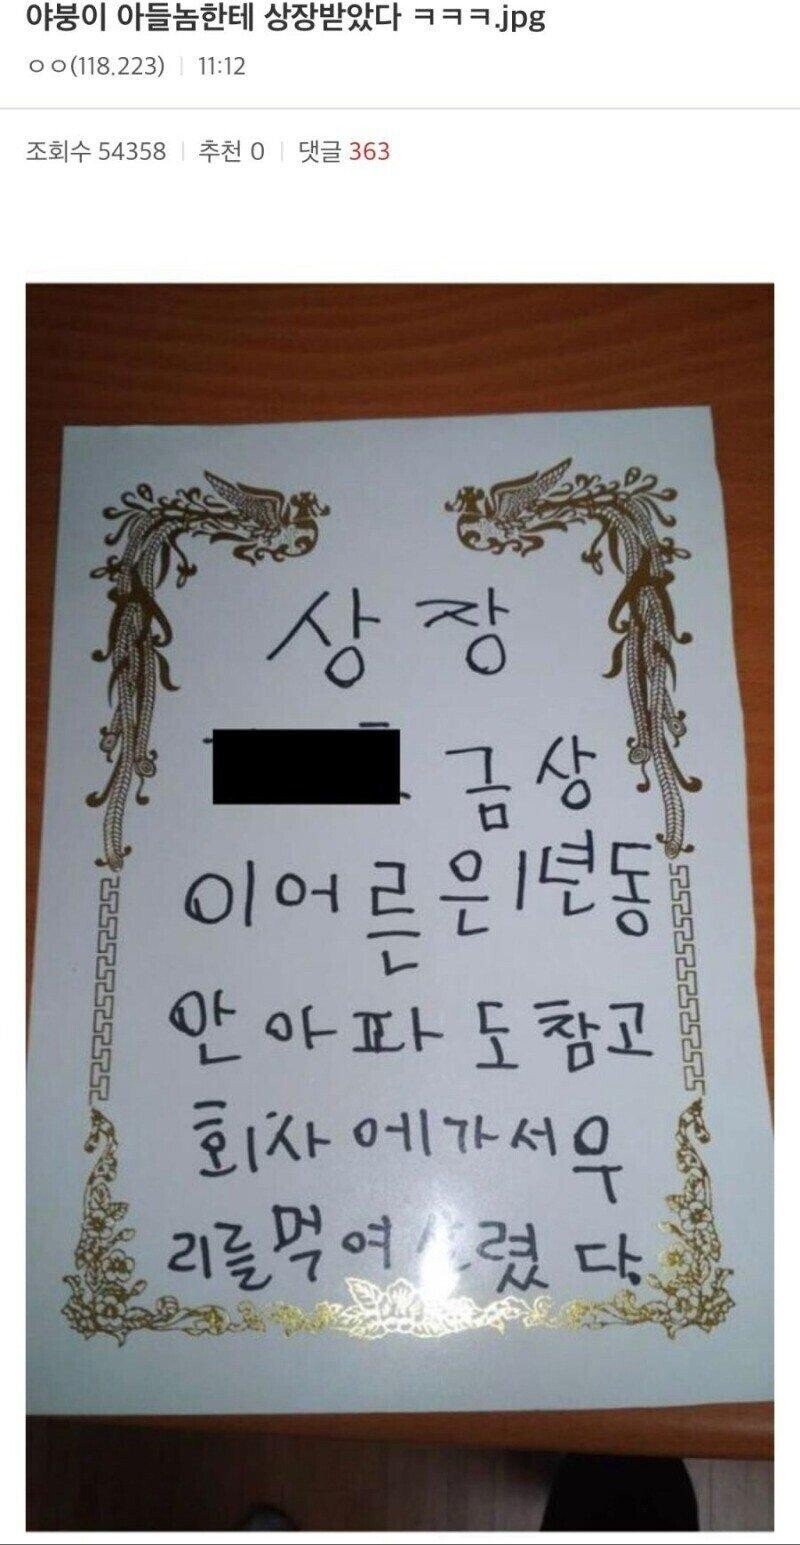 야붕이 아들놈한테 상장받았다 ㅋㅋㅋ.jpg
ㅇㅇ(118.223) | 11:12
조회수 54358 | 추천 0 | 댓글 363
상장
금상
이어른은1년동
안아파도참고
회사에가서우
리를먹여 렸다.